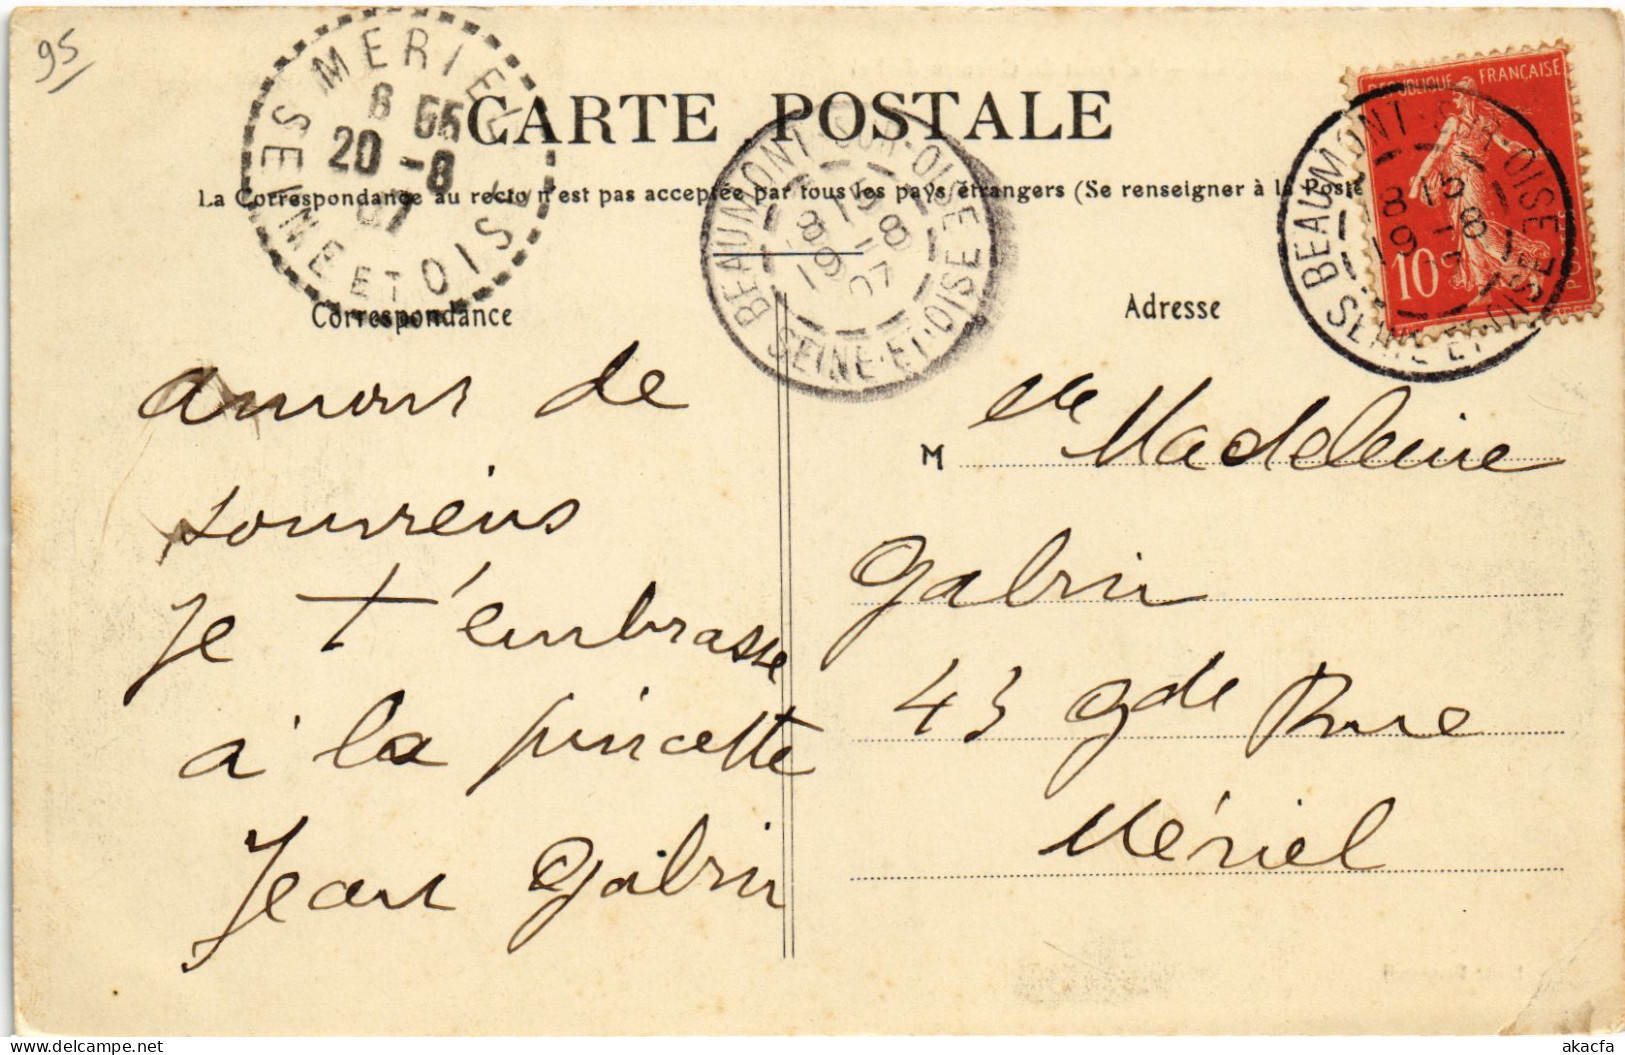 95
MERIEL
8 55
20 -8
07
SEINE ET OISE
CARTE POSTALE
La Correspondance au recto n'est pas acceptée par tous les pays étrangers (Se renseigner à la Poste
BEAUMONT-SUR-OISE
8 15
19 -8
07
SEINE-ET-OISE
REPUBLIQUE FRANÇAISE
10
POSTES
BEAUMONT-SUR-OISE
8 15
19 -8
SEINE-ET-OISE
Correspondance
Adresse
amour de
souvréns
je t'embrasse
à la pincette
Jean Gabrin
M elle Madeleine
Gabrin
43 gde Rue
Mériel
akacfa